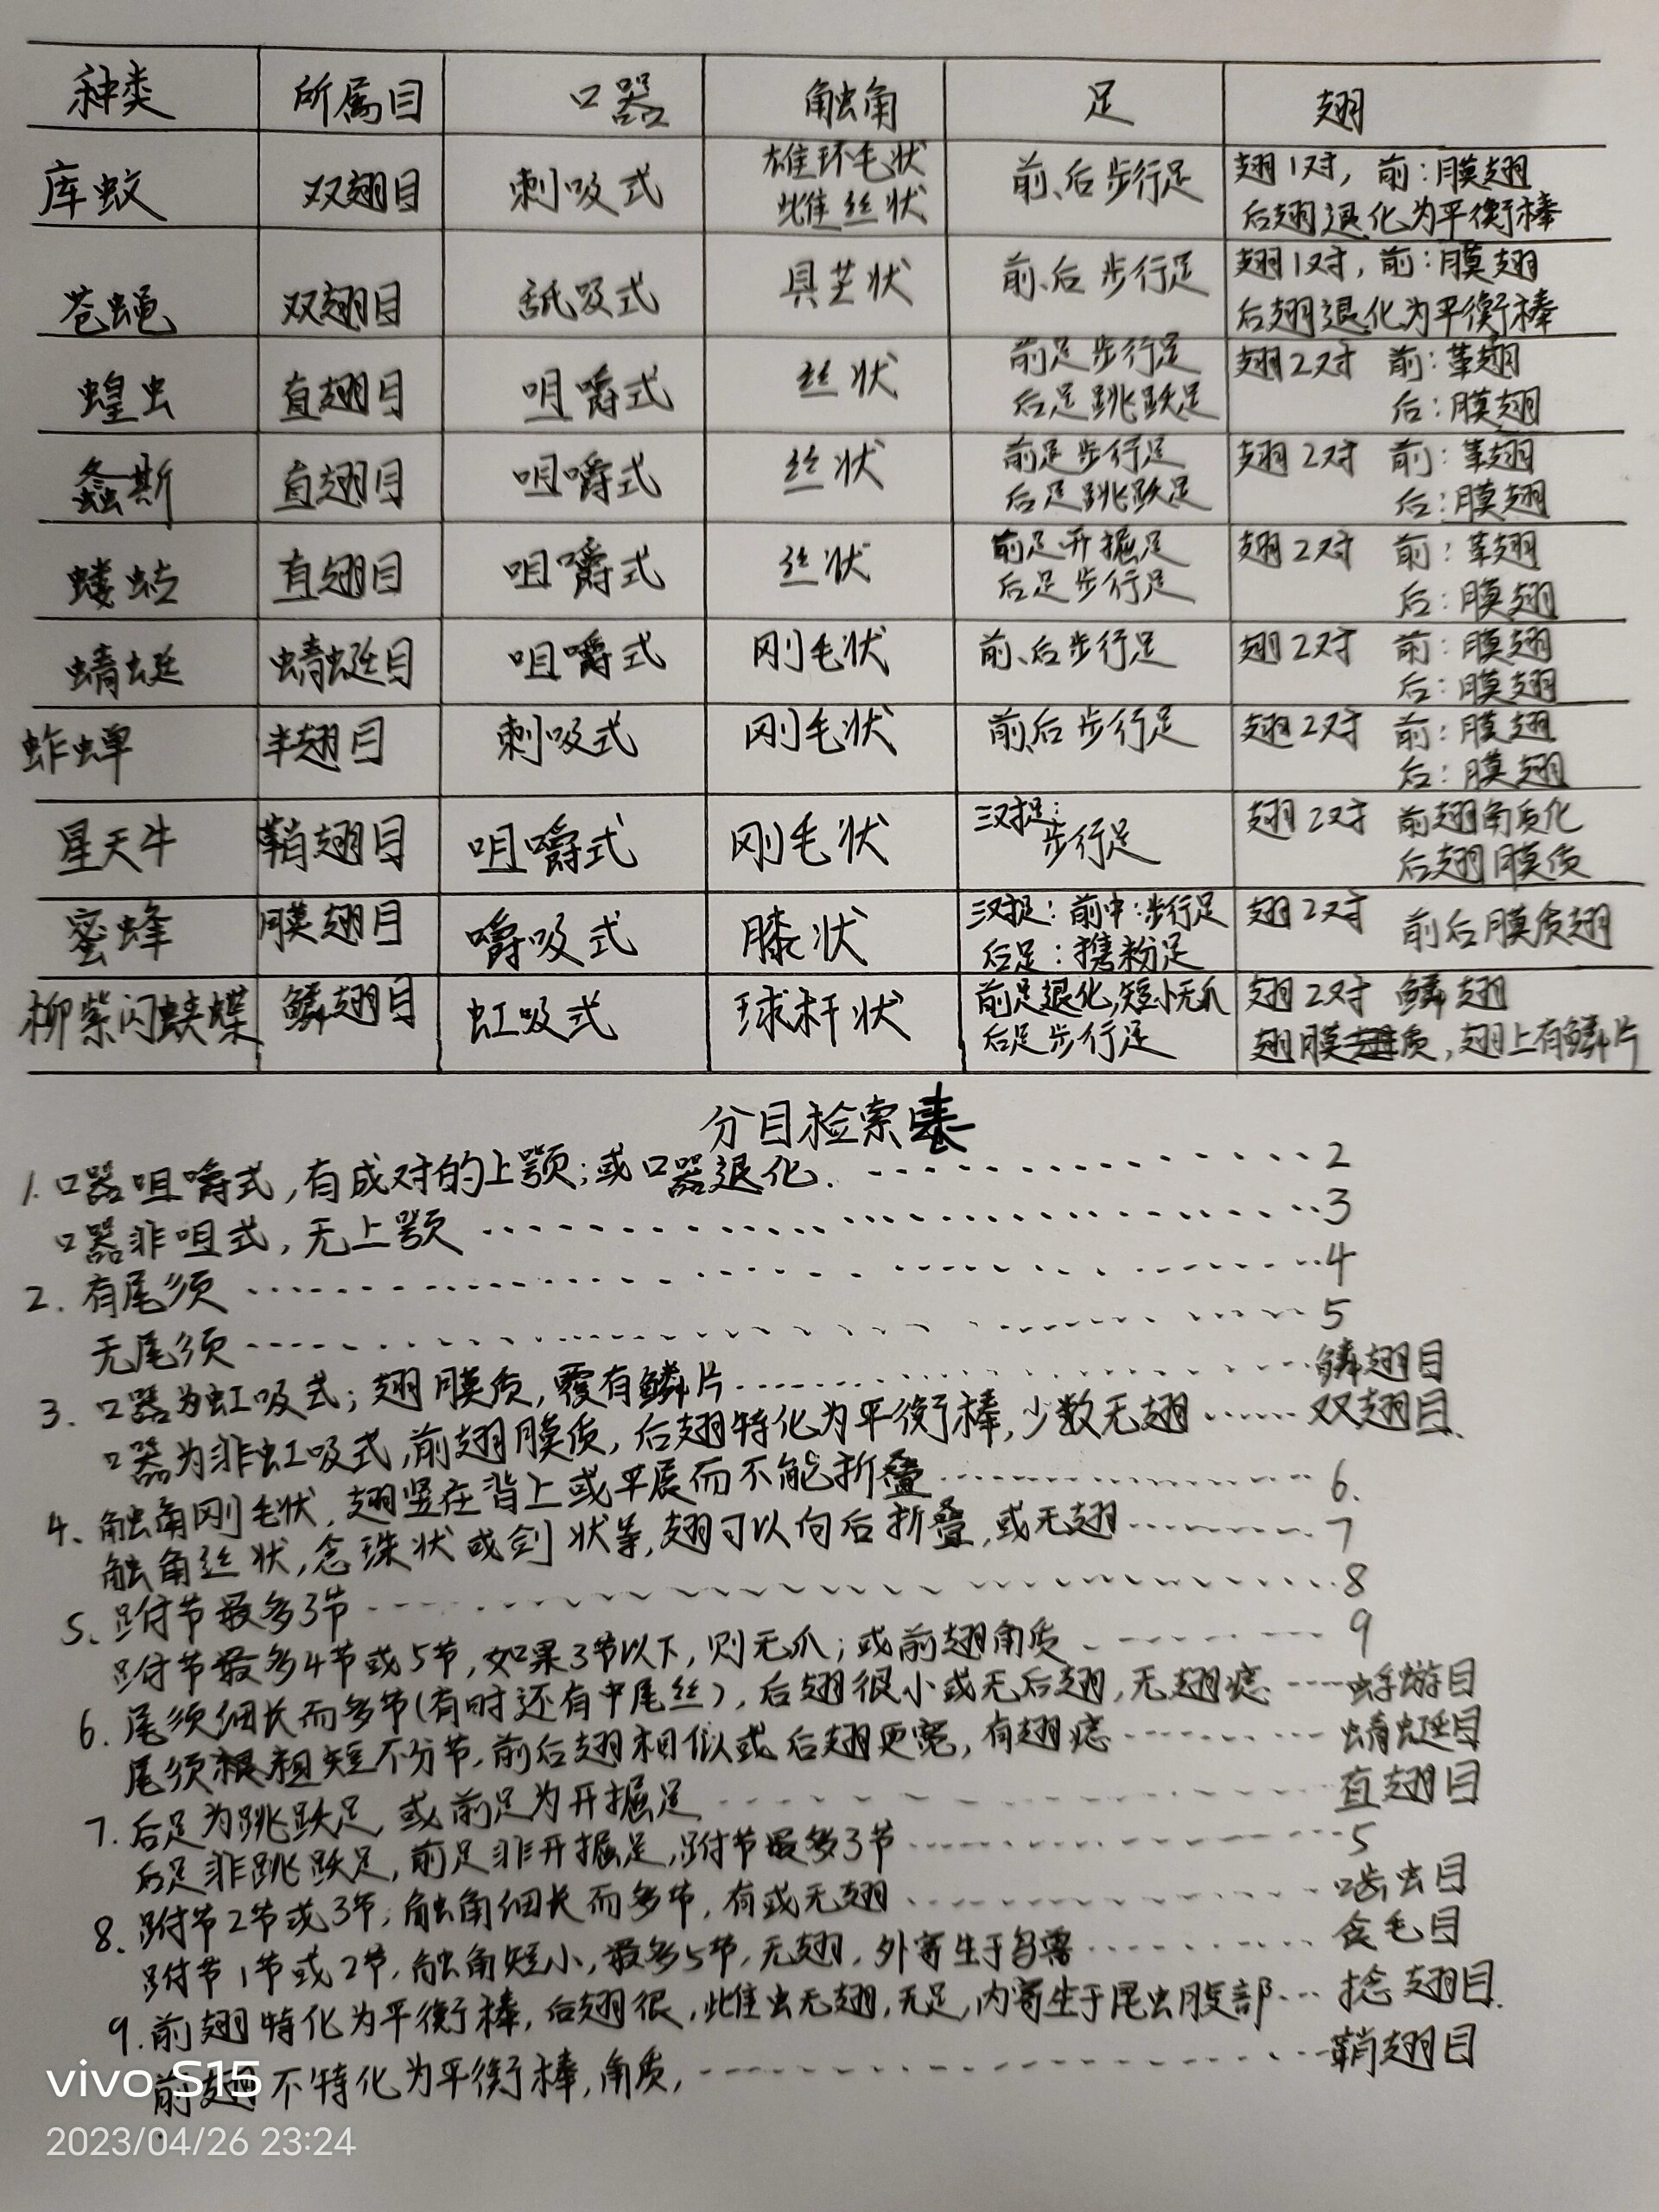 种类 所属目 口器 触角 足 翅
库蚊 双翅目 刺吸式 雄环毛状 雌丝状 前、后步行足 翅1对，前：膜翅 后翅退化为平衡棒
苍蝇 双翅目 舐吸式 具芒状 前、后步行足 翅1对，前：膜翅 后翅退化为平衡棒
蝗虫 直翅目 咀嚼式 丝状 前足步行足 后足跳跃足 翅2对 前：革翅 后：膜翅
螽斯 直翅目 咀嚼式 丝状 前足步行足 后足跳跃足 翅2对 前：革翅 后：膜翅
蝼蛄 直翅目 咀嚼式 丝状 前足开掘足 后足步行足 翅2对 前：革翅 后：膜翅
蜻蜓 蜻蜓目 咀嚼式 刚毛状 前、后步行足 翅2对 前：膜翅 后：膜翅
蚱蝉 半翅目 刺吸式 刚毛状 前、后步行足 翅2对 前：膜翅 后：膜翅
星天牛 鞘翅目 咀嚼式 刚毛状 步行足 翅2对 前翅角质化 后翅膜质
蜜蜂 膜翅目 嚼吸式 膝状 前中：步行足 后足：携粉足 翅2对 前后膜质翅
柳紫闪蛱蝶 鳞翅目 虹吸式 球杆状 前足退化，短小无爪 后足步行足 翅2对 鳞翅 翅膜质，翅上有鳞片
分目检索表
1. 口器咀嚼式，有成对的上颚；或口器退化. ………… 2
口器非咀式，无上颚 ………… 3
2. 有尾须 ………… 4
无尾须 ………… 5
3. 口器为虹吸式；翅膜质，覆有鳞片 ………… 鳞翅目
口器为非虹吸式，前翅膜质，后翅特化为平衡棒，少数无翅 …… 双翅目.
4、触角刚毛状，翅竖在背上或平展而不能折叠 ………… 6.
触角丝状，念珠状或剑状等，翅可以向后折叠，或无翅 ………… 7
5、跗节最多3节 ………… 8
跗节最多4节或5节，如果3节以下，则无爪；或前翅角质 ………… 9
6. 尾须细长而多节（有时还有中尾丝），后翅很小或无后翅，无翅痣 …… 蜉蝣目
尾须粗短不分节，前后翅相似或后翅更宽，有翅痣 ………… 蜻蜓目
7. 后足为跳跃足，或前足为开掘足 ………… 直翅目
后足非跳跃足，前足非开掘足，跗节最多3节 ………… 5
8. 跗节2节或3节；触角细长而多节，有或无翅 ………… 啮虫目
跗节1节或2节，触角短小，最多5节，无翅，外寄生于鸟兽 ………… 食毛目
9. 前翅特化为平衡棒，后翅很，雌虫无翅，无足，内寄生于昆虫腹部 … 捻翅目.
前翅不特化为平衡棒，角质， ………… 鞘翅目
vivo S15
2023/04/26 23:24